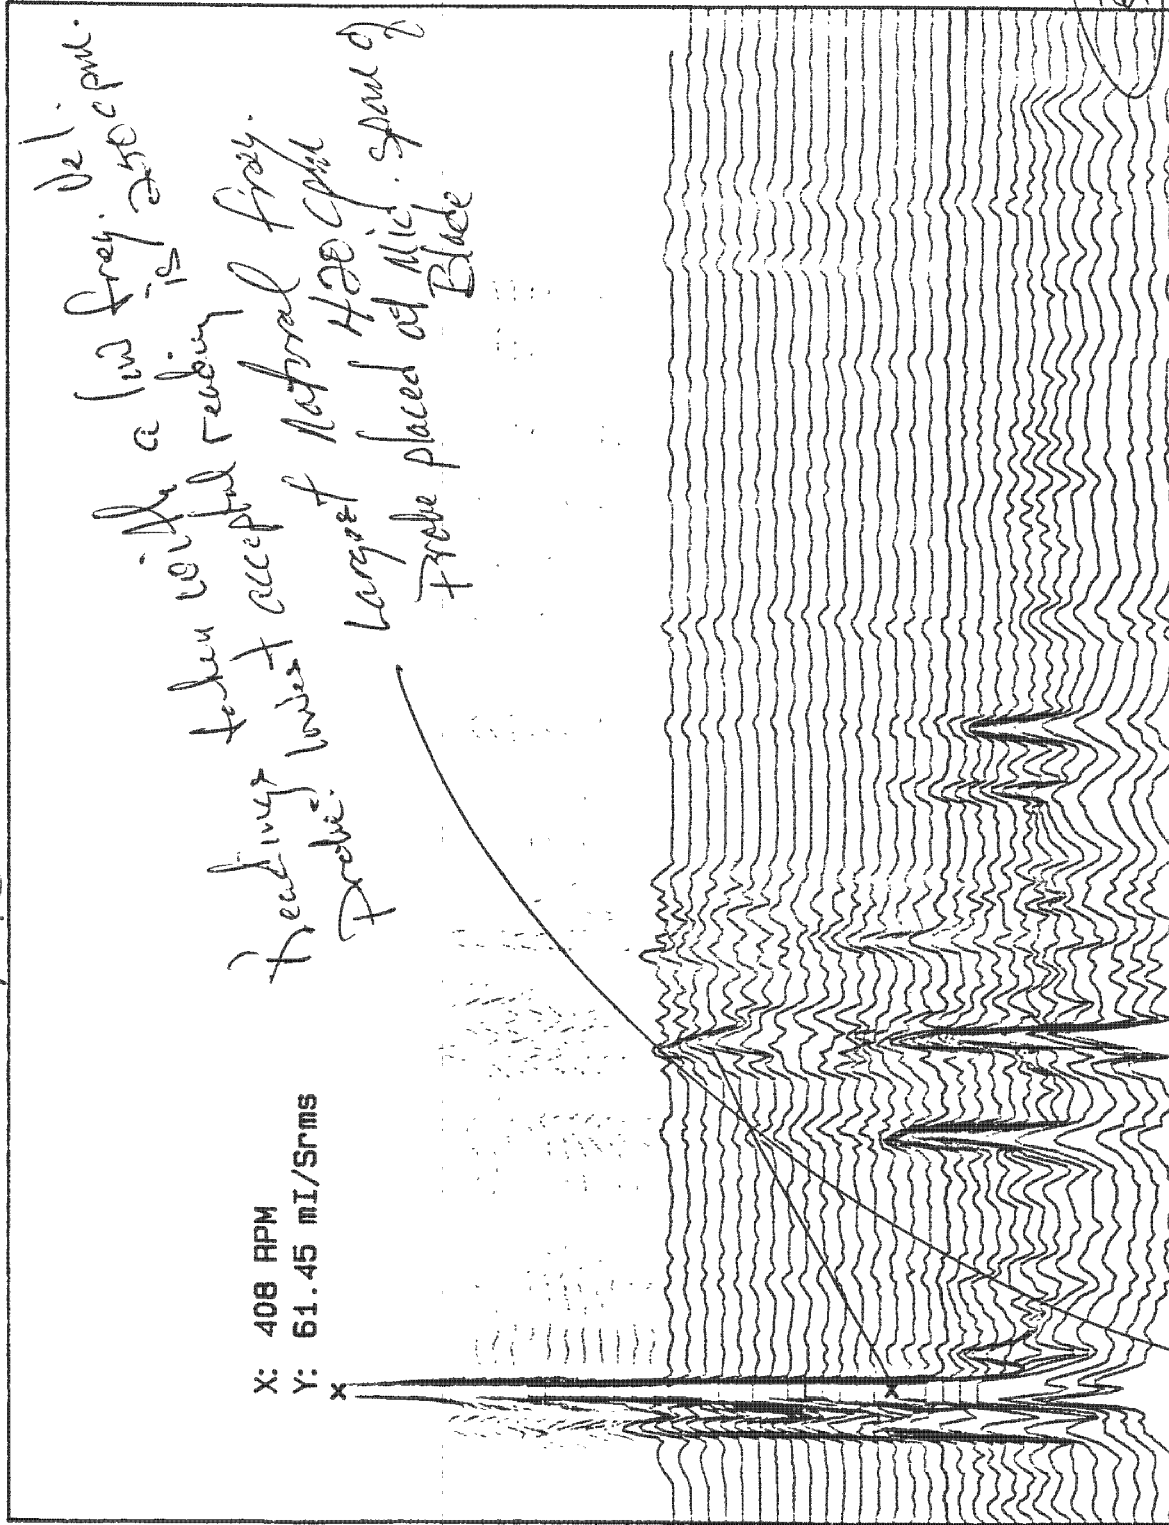 X: 408 RPM
Y: 61.45 mI/Srms
X
X
Readings taken with a low freq. Vel.
Probe. lowest acceptal reading is 250 cpm.
Largest Natural freq.
420 cpm
Probe placed at Mid. span of
Blade